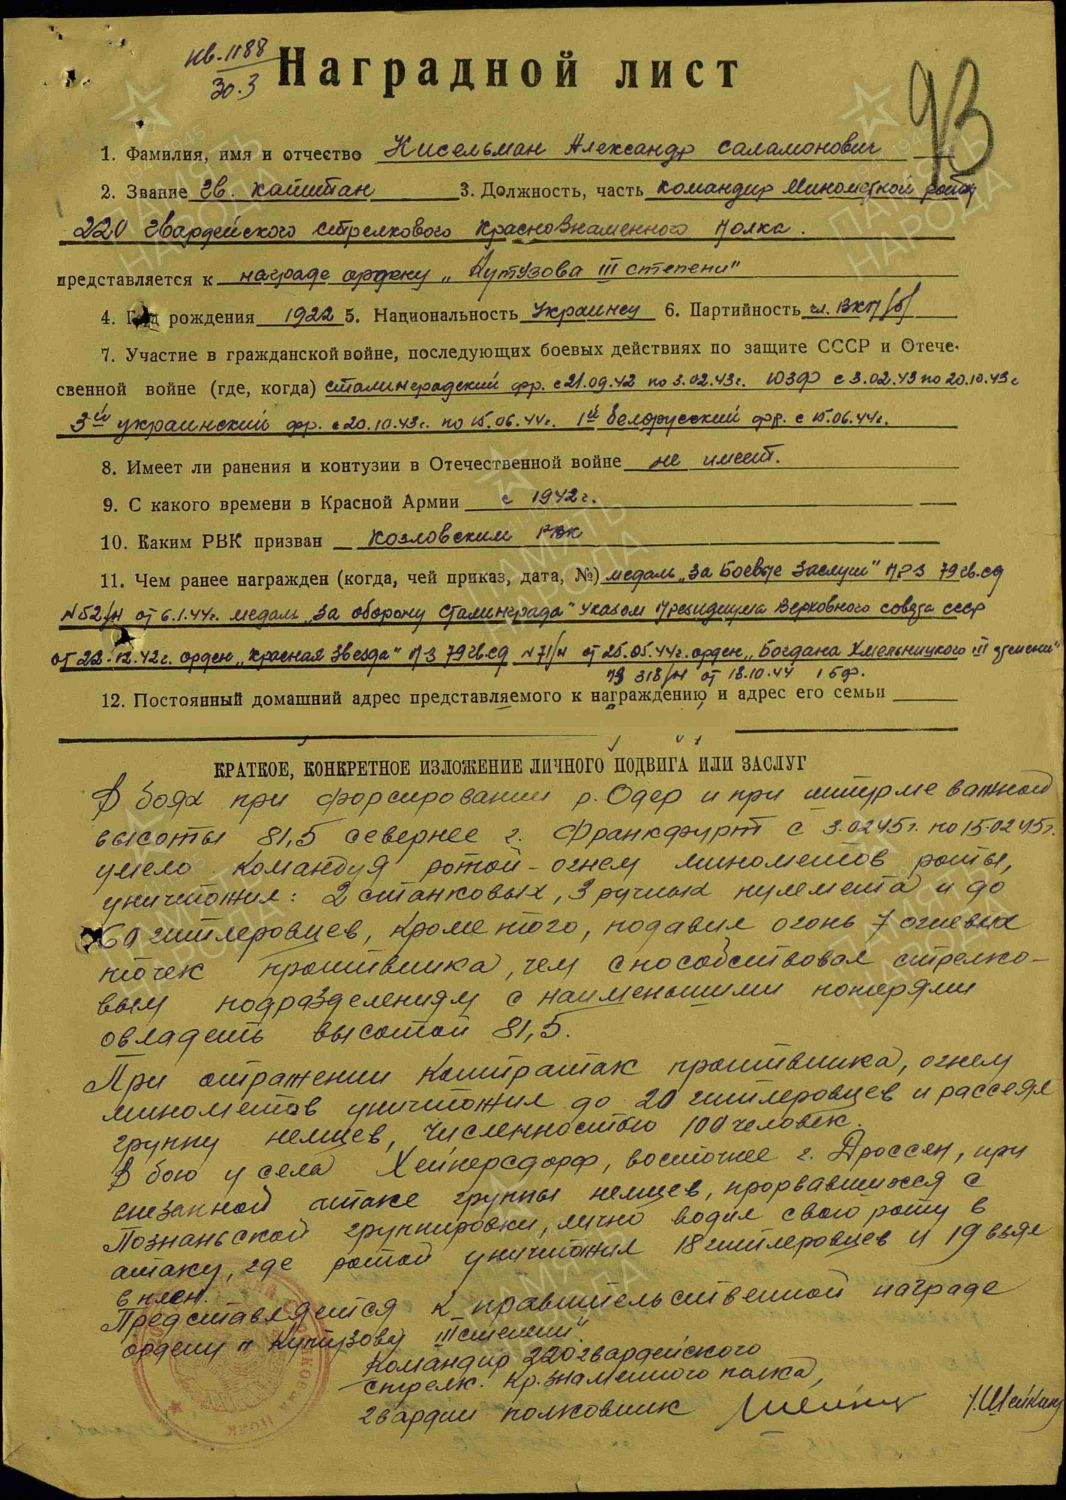 Нв. 1188
30.3
Наградной лист
93
1. Фамилия, имя и отчество Кисельман Александр Саламонович
2. Звание Гв. капитан 3. Должность, часть командир минометной роты
220 Гвардейского стрелкового Краснознаменного полка.
представляется к награде ордену „Кутузова III степени"
4. Год рождения 1922 5. Национальность Украинец 6. Партийность чл. ВКП/б/
7. Участие в гражданской войне, последующих боевых действиях по защите СССР и Отече-
свенной войне (где, когда) сталинградский фр. с 21.09.42 по 3.02.43г. ЮЗФ с 3.02.43 по 20.10.43г
3й украинский фр. с 20.10.43г. по 15.06.44г. 1й белорусский фр. с 15.06.44г.
8. Имеет ли ранения и контузии в Отечественной войне не имеет.
9. С какого времени в Красной Армии с 1942г.
10. Каким РВК призван Козловским РВК
11. Чем ранее награжден (когда, чей приказ, дата, №) медаль „За Боевые Заслуги" ПРЗ 79 гв.сд
№ 52/н от 6.1.44г. медаль „За оборону Сталинграда" Указом Президиума Верховного совета ссср
от 22.12.42г. орден „Красная Звезда" ПЗ 79 гв.сд №71/н от 25.05.44г. орден „Богдана Хмельницкого III степени"
ПЗ 318/н от 18.10.44 1 бф.
12. Постоянный домашний адрес представляемого к награждению и адрес его семьи
КРАТКОЕ, КОНКРЕТНОЕ ИЗЛОЖЕНИЕ ЛИЧНОГО ПОДВИГА ИЛИ ЗАСЛУГ
В боях при форсировании р. Одер и при штурме важной
высоты 81,5 севернее г. Франкфурт с 3.02.45г. по 15.02.45г.
умело командуя ротой - огнем минометов роты,
уничтожил: 2 станковых, 3 ручных пулемета и до
60 гитлеровцев, кроме того, подавил огонь 7 огневых
точек противника, чем способствовал стрелко-
вым подразделениям с наименьшими потерями
овладеть высотой 81,5.
При отражении контратак противника, огнем
минометов уничтожил до 20 гитлеровцев и рассеял
группу немцев, численностью 100 человек.
В бою у села Хейнерсдорф, восточнее г. Дроссен, при
внезапной атаке группы немцев, прорвавшихся с
Познаньской группировки, лично водил свою роту в
атаку, где ротой уничтожил 18 гитлеровцев и 19 взял
в плен.
Представляется к правительственной награде
ордену „Кутузова III степени".
Командир 220 гвардейского
стрелк. Кр.знаменного полка,
гвардии полковник /Шейкин/
ПАМЯТЬ
НАРОДА